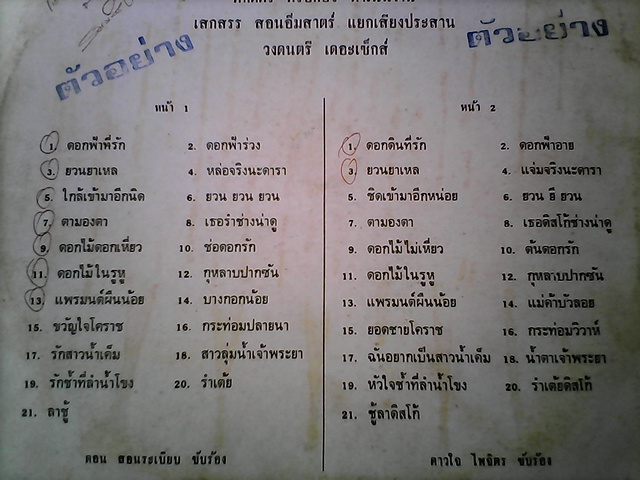 เสกสรร สอนอิมสาตร์ แยกเสียงประสาน
วงดนตรี เดอะเช็กส์
ตัวอย่าง
ตัวอย่าง
หน้า 1
1. ดอกฟ้าพี่รัก 2. ดอกฟ้าร่วง
3. ยวนยาเหล 4. หล่อจริงนะดารา
5. ใกล้เข้ามาอีกนิด 6. ยวน ยวน ยวน
7. ตามองตา 8. เธอรำช่างน่าดู
9. ดอกไม้ดอกเหี่ยว 10. ช่อดอกรัก
11. ดอกไม้ในรูหู 12. กุหลาบปากซัน
13. แพรมนต์ผืนน้อย 14. บางกอกน้อย
15. ขวัญใจโคราช 16. กระท่อมปลายนา
17. รักสาวน้ำเค็ม 18. สาวลุ่มน้ำเจ้าพระยา
19. รักช้ำที่ลำน้ำโขง 20. รำเต้ย
21. ลาชู้
ตอน สอนระเบียบ ขับร้อง
หน้า 2
1. ดอกดินที่รัก 2. ดอกฟ้าอาย
3. ยวนยาเหล 4. แจ่มจริงนะดารา
5. ชิดเข้ามาอีกหน่อย 6. ยวน ยี ยวน
7. ตามองตา 8. เธอดิสโก้ช่างน่าดู
9. ดอกไม้ไม่เหี่ยว 10. ต้นดอกรัก
11. ดอกไม้ในรูหู 12. กุหลาบปากซัน
13. แพรมนต์ผืนน้อย 14. แม่ค้าบัวลอย
15. ยอดชายโคราช 16. กระท่อมวิวาห์
17. ฉันอยากเป็นสาวน้ำเค็ม 18. น้ำตาเจ้าพระยา
19. หัวใจช้ำที่ลำน้ำโขง 20. รำเต้ยดิสโก้
21. ชู้ลาดิสโก้
ดาวใจ ไพจิตร ขับร้อง